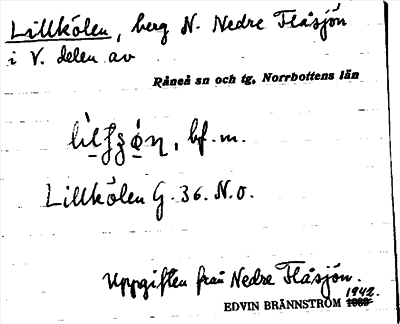 Lillkölen, berg N. Nedre Flåsjön
i V. delen av
Råneå sn och tg, Norrbottens län
bf. m.
Lillkölen G. 36. N.O.
Uppgiften från Nedre Flåsjön.
EDVIN BRÄNNSTRÖM 1942.